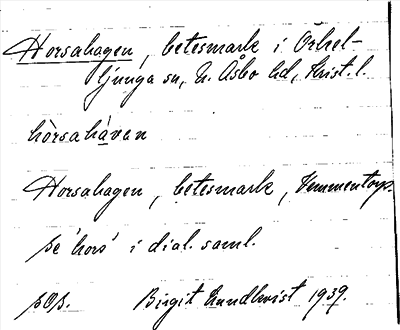 Horsahagen, betesmark i Örkel-
ljunga sn, N. Åsbo hd, Krist. l.
hòrsahàvan
Horsahagen, betesmark, Vemmentorp.
se 'hors' i dial. saml.
sOs. Birgit Lundkvist 1939.